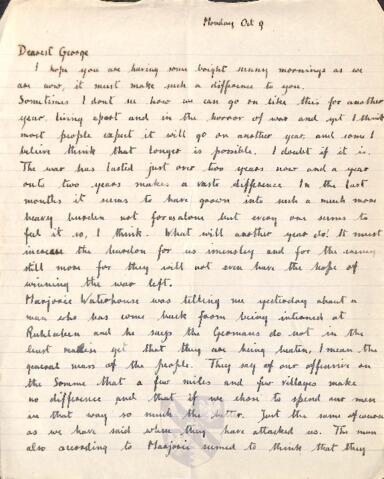 Monday Oct 9
Dearest George
I hope you are having some bright sunny mornings as we
are now, it must make such a difference to you.
Sometimes I dont see how we can go on like this for another
year, living apart and in the horror of war and yet I think
most people expect it will go on another year, and some I
believe think that longer is possible. I doubt if it is.
The war has lasted just over two years now and a year
onto two years makes a vaste difference. In the last
months it seems to have grown into such a much more
heavy burden not for us alone but every one seems to
feel it so, I think. What will another year do! It must
increase the burdon for us imensley and for the enemy
still more for they will not even have the hope of
winning the war left.
Marjorie Waterhouse was telling me yesterday about a
man who has come back from being interned at
Ruhlaben and he says the Germans do not in the
least realise yet that they are being beaten, I mean the
general mass of the people. They say of our offensive on
the Somme that a few miles and few villages make
no difference and that if we chose to spend our men
in that way so much the better. Just the same of course
as we have said when they have attacked us. The man
also according to Marjorie seemed to think that they